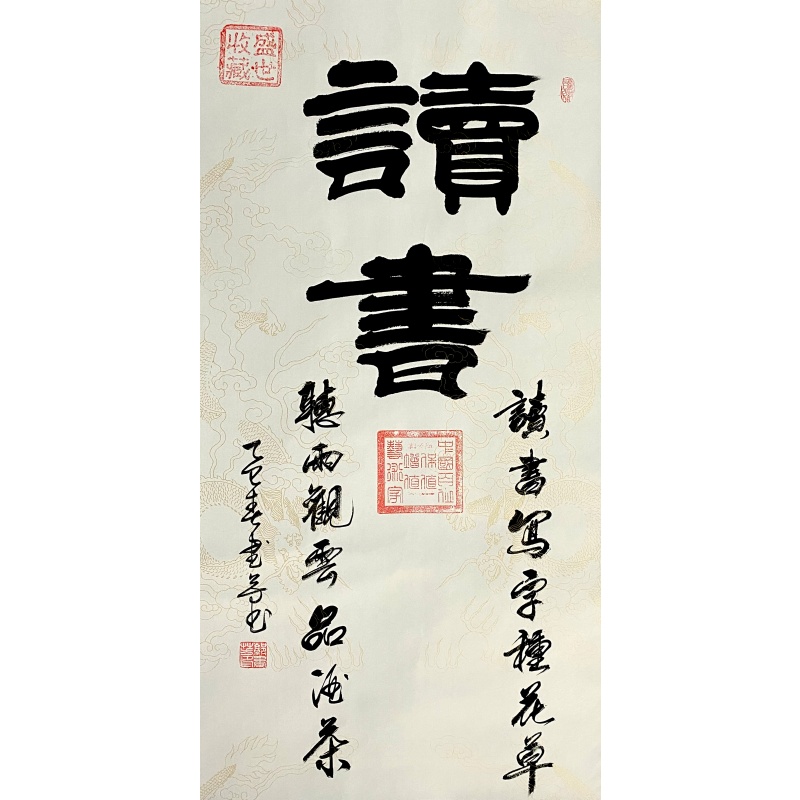 讀書
讀書寫字種花草
聽雨觀雲品酒茶
乙巳春
盛世收藏